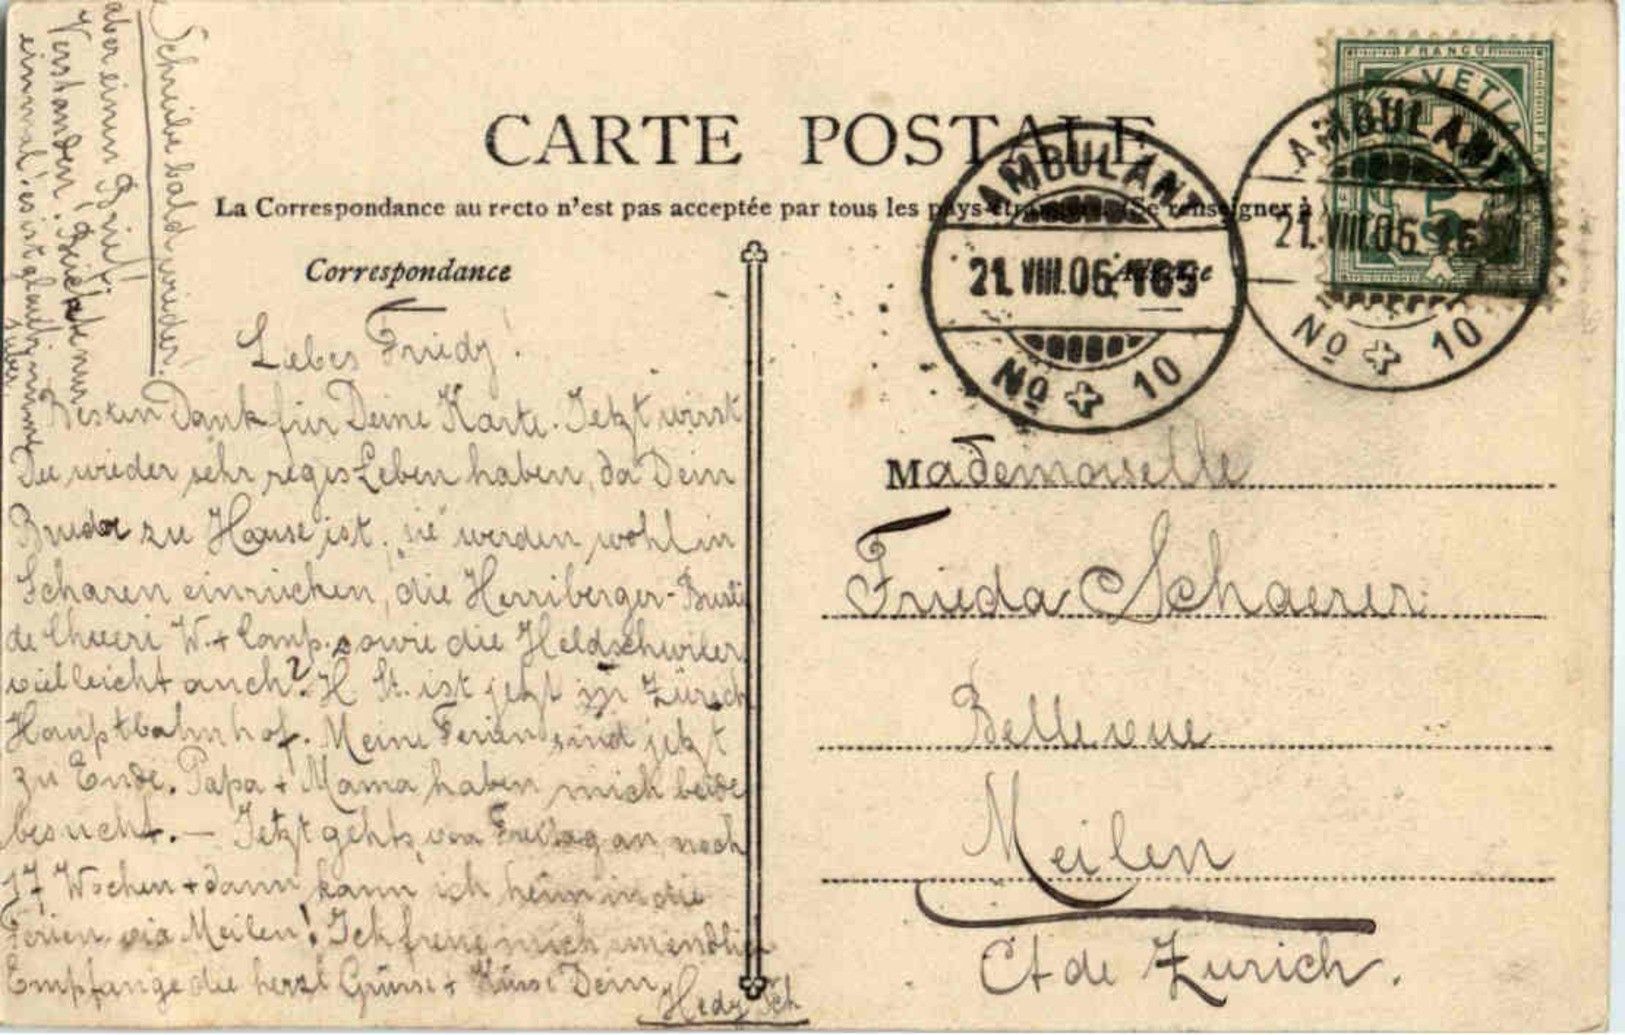 CARTE POSTALE
La Correspondance au recto n'est pas acceptée par tous les pays étrangers. (Se renseigner à
Correspondance
FRANCO
HELVETIA
5
AMBULANT
21.VIII.06.
No 10
AMBULANT
21.VIII.06.
No 10
Liebes Friedy!
Besten Dank für Deine Karte. Jetzt wirst
Du wieder sehr reges Leben haben, da Dein
Bruder zu Hause ist, „sie" werden wohl in
Scharen einrücken, die Herriberger-
W. + Comp. sowie die
vielleicht auch? H St. ist jetzt in Zürich
Hauptbahnhof. Meine Ferien sind jetzt
zu Ende. Papa + Mama haben mich beide
besucht. — Jetzt gehts, von Freitag an noch
17 Wochen + dann kann ich heim in die
Ferien via Meilen! Ich freue mich unendlich
Empfange die herzl Grüsse + Küsse Dein
Hedy Sch
Schreibe bald wieder!
aber einen Brief!
Verstanden! nur
einmal, es ist glaub immer
Mademoiselle
Frieda Schaerer
Bellevue
Meilen
Ct de Zürich.